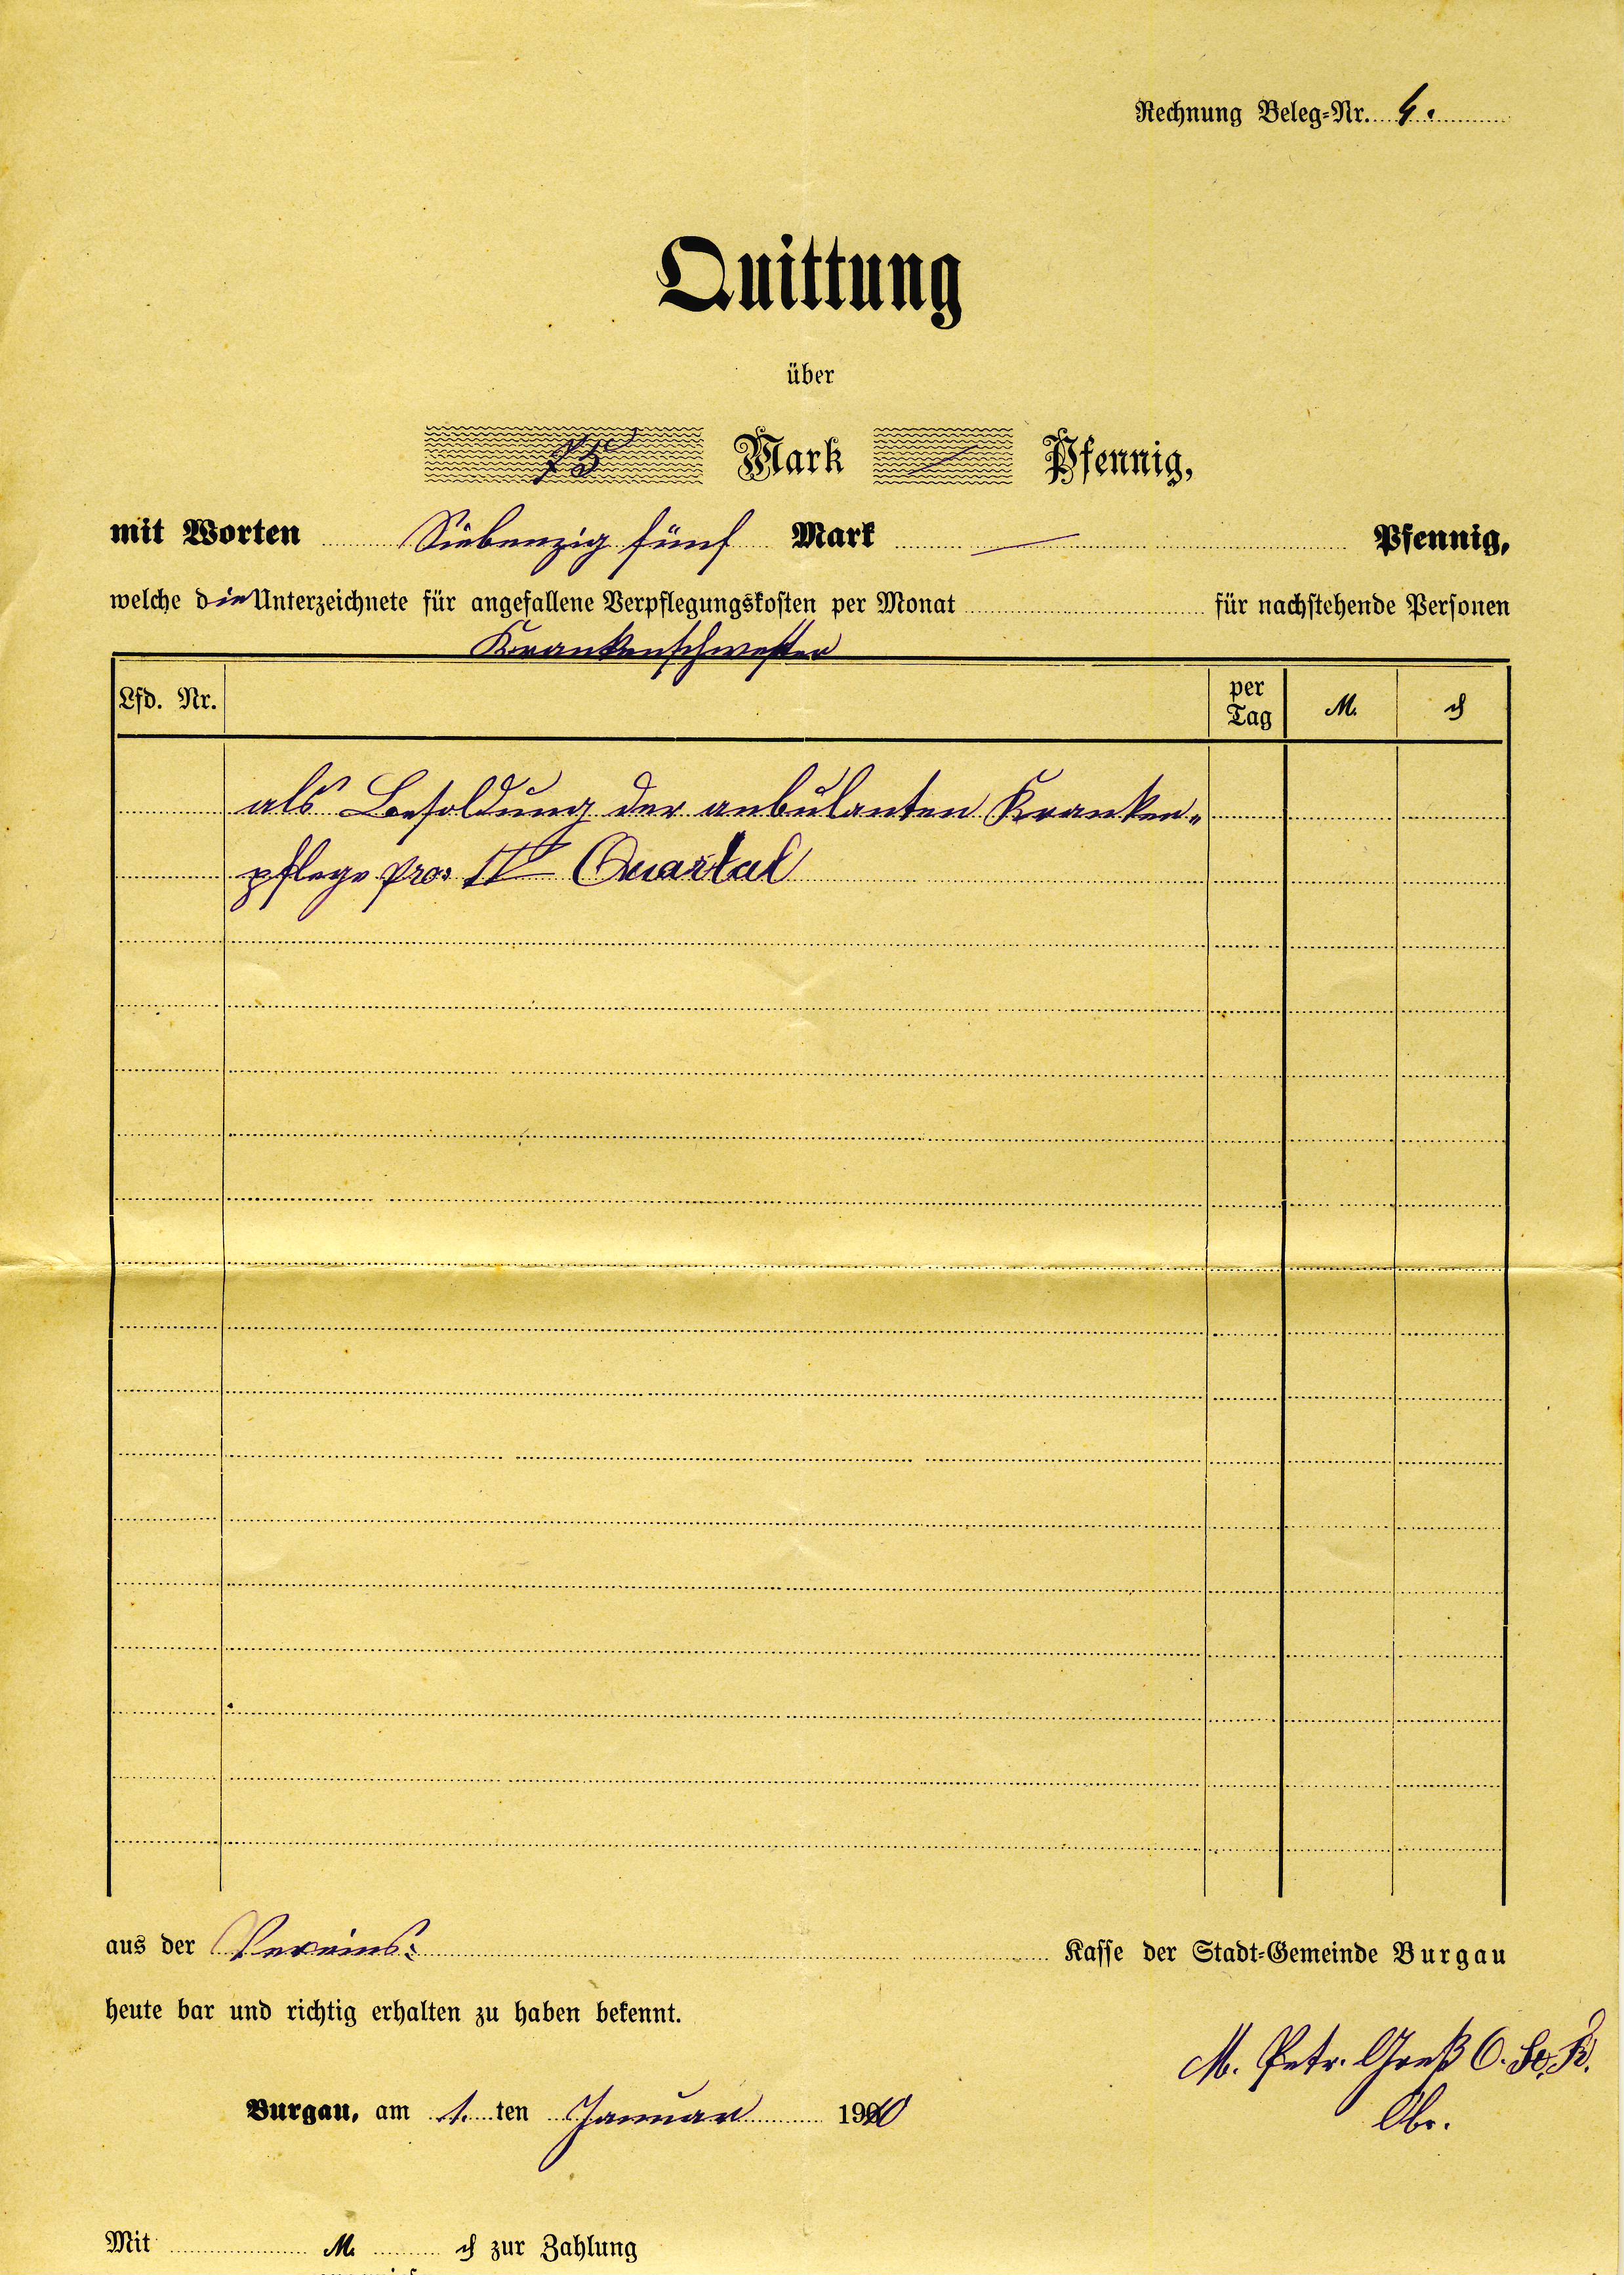 Rechnung Beleg-Nr. 4.
Quittung
über
75 Mark — Pfennig,
mit Worten Siebenzig fünf Mark — Pfennig,
welche die Unterzeichnete für angefallene Verpflegungskosten per Monat für nachstehende Personen
Krankenschwester
Lfd. Nr. per Tag M. ₰
als Besoldung der anbulanten Kranken-
pflege pro IV Quartal
aus der Vereins: Kasse der Stadt-Gemeinde Burgau
heute bar und richtig erhalten zu haben bekennt.
M. Petr.
Burgau, am 1. ten Januar
Obr.
Mit M. ₰ zur Zahlung